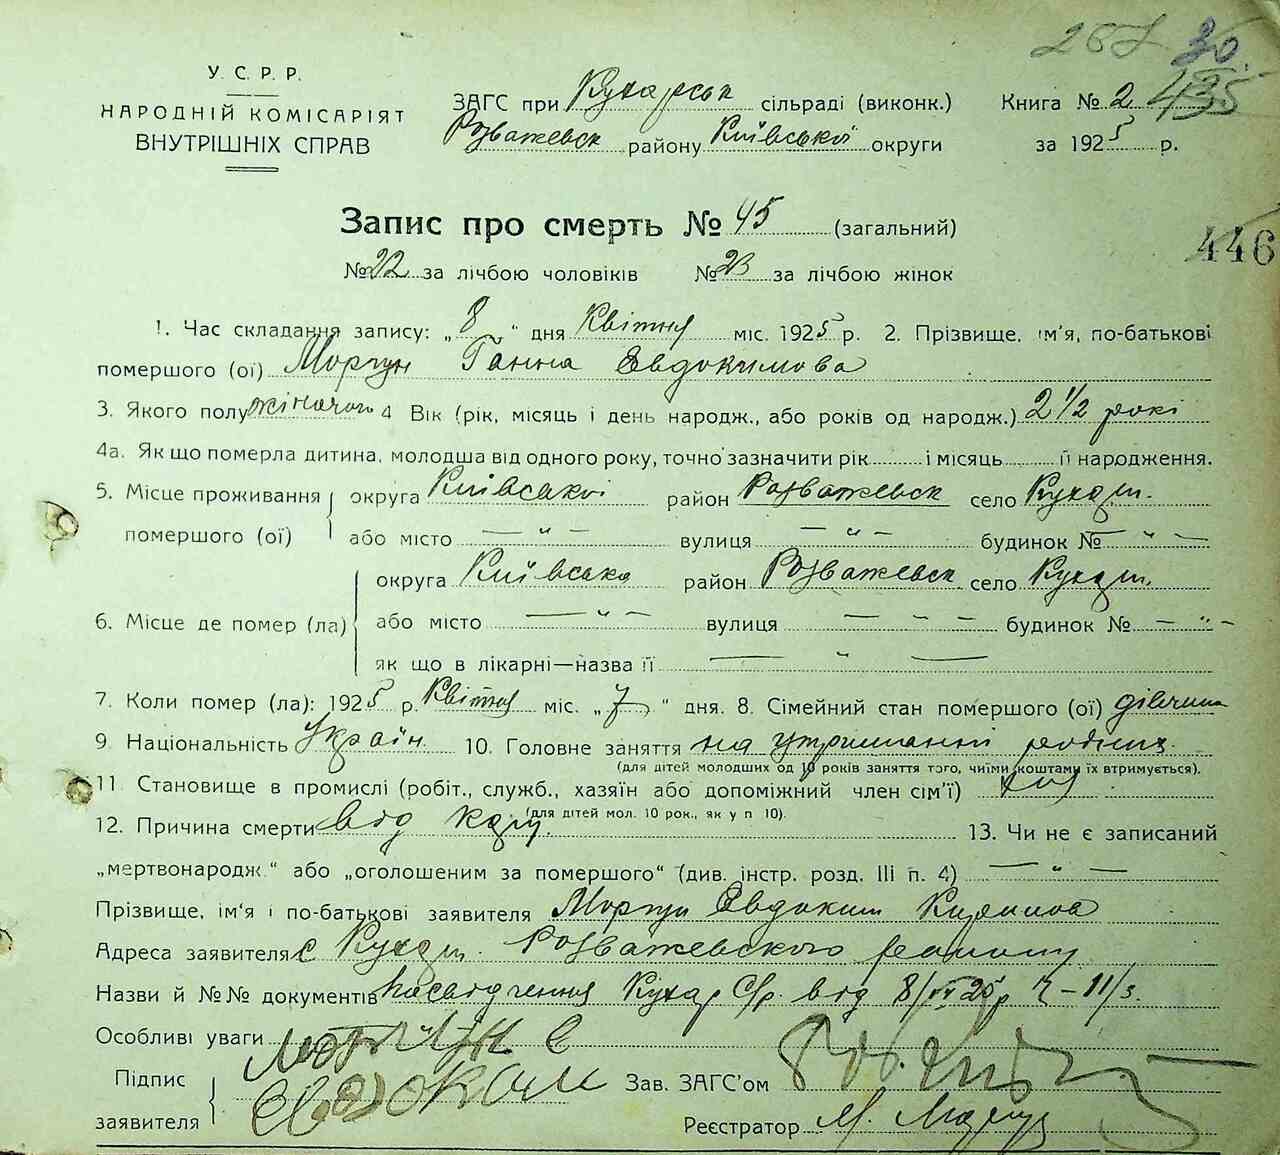 30.
435
У. С. Р. Р.
НАРОДНІЙ КОМІСАРІЯТ
ВНУТРІШНІХ СПРАВ
ЗАГС при Кухарськ сільраді (виконк.)
Розважевськ району Київської округи
Книга № 2
за 1925 р.
446
Запис про смерть № 45 (загальний)
№ 22 за лічбою чоловіків № 23 за лічбою жінок
1. Час складання запису: „8" дня Квітня міс. 1925 р. 2. Прізвище, ім'я, по-батькові
помершого (ої) Моргун Ганна Евдокимова
3. Якого полу жіночого 4 Вік (рік, місяць і день народж., або років од народж.) 2 1/2 рокі
4а. Як що померла дитина, молодша від одного року, точно зазначити рік і місяць її народження.
5. Місце проживання помершого (ої) округа Київської район Розважевск село Кухарі.
або місто — „ — вулиця — „ — будинок № — „ —
6. Місце де помер (ла) округа Київська район Розважевск село Кухарі.
або місто — „ — вулиця — „ — будинок № — „ —
як що в лікарні—назва її — „ —
7. Коли помер (ла): 1925 р. Квітня міс. „7" дня. 8. Сімейний стан помершого (ої) дівчина
9. Національність Україн. 10. Головне заняття на утриманні родини
(для дітей молодших од 10 років заняття того, чиїми коштами їх втримується).
11 Становище в промислі (робіт., служб., хазяїн або допоміжний член сім'ї)
(для дітей мол. 10 рок., як у п 10).
12. Причина смерти від кору. 13. Чи не є записаний
„мертвонародж." або „оголошеним за помершого" (див. інстр. розд. III п. 4) — „ —
Прізвище, ім'я і по-батькові заявителя Моргун Евдоким
Адреса заявителя с Кухарі. Розважевского району
Назви й №№ документів Посвідчення Кухар С/р. від 8/IV 25р
Особливі уваги
Підпис заявителя Моргун Евдоким Зав. ЗАГС'ом
Реєстратор М.